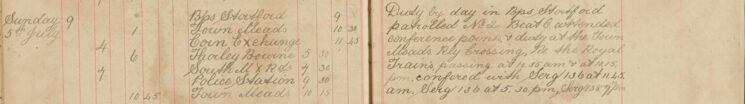 Bps Stortford 9
Sunday 9 1 Town Meads 10 30
5th July Corn Exchange 11 45
4 6 Thorley Bourne 5 30
4 South M X Rds 4 30
Police Station 9 30
10 45 Town Meads 10 15
Duty by day in Bps Stortford
patrolled No 2 Beat & attended
conference points & duty at the Town
Meads Rly Crossing, the Royal
Train passing at 12.55 pm & at 4.15
pm, confered with Serg 136 at 11.45
am, Serg 136 at 5.30 pm, Serg 138 9 pm